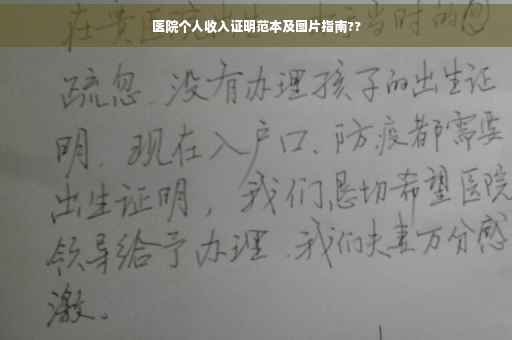 医院个人收入证明范本及图片指南??
在贵医院 当时的
疏忽、没有办理孩子的出生证
明、现在入户口、防疫都需要
出生证明，我们恳切希望医院
领导给予办理、我们夫妻万分感
激。